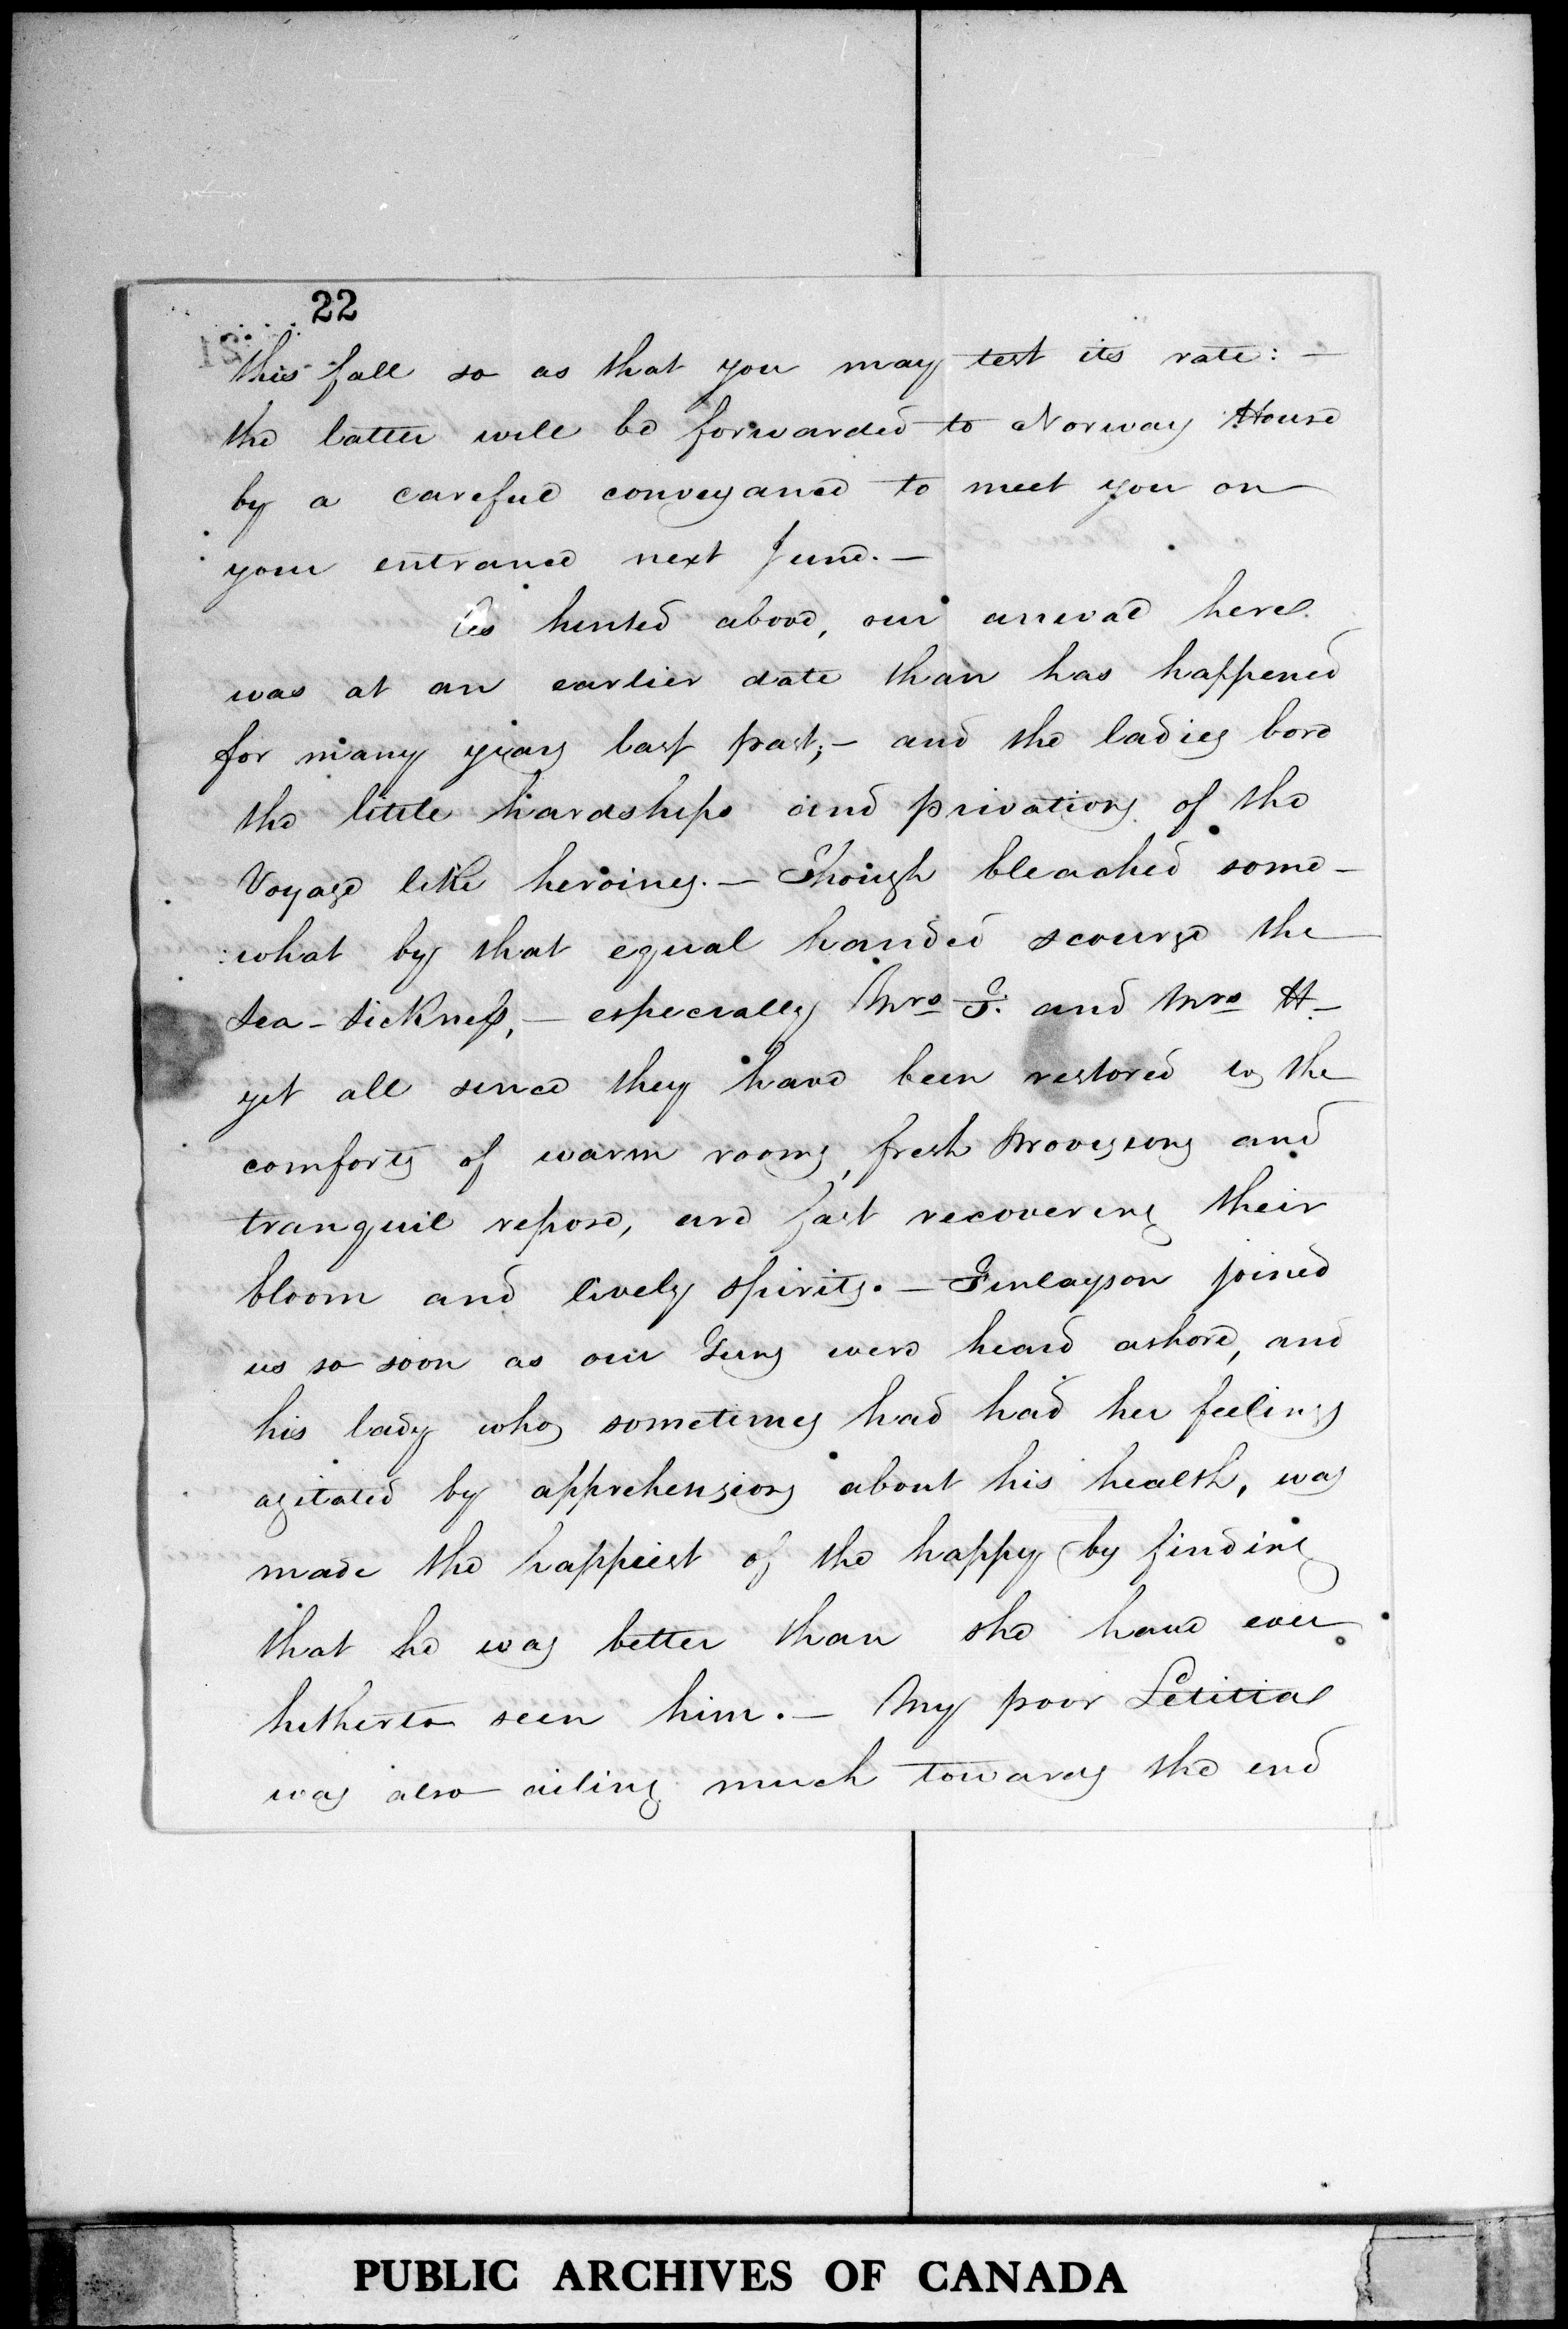 22
this fall so as that you may test its rate: —
the latter will be forwarded to Norway House
by a careful conveyance to meet you on
your entrance next June. —
As hinted above, our arrival here
was at an earlier date than has happened
for many years last past; — and the ladies bore
the little hardships and privations of the
Voyage like heroines. — Though bleached some-
what by that equal handed scourge the
Sea-Sickness, — especially Mrs F. and Mrs H —
yet all since they have been restored to the
comforts of warm rooms, fresh Provisions and
tranquil repose, are fast recovering their
bloom and lively spirits. — Finlayson joined
us so soon as our Guns were heard ashore, and
his lady who sometimes had had her feelings
agitated by apprehensions about his health, was
made the happiest of the happy by finding
that he was better than she have ever
hitherto seen him. — My poor Letitia
was also ailing much towards the end
PUBLIC ARCHIVES OF CANADA